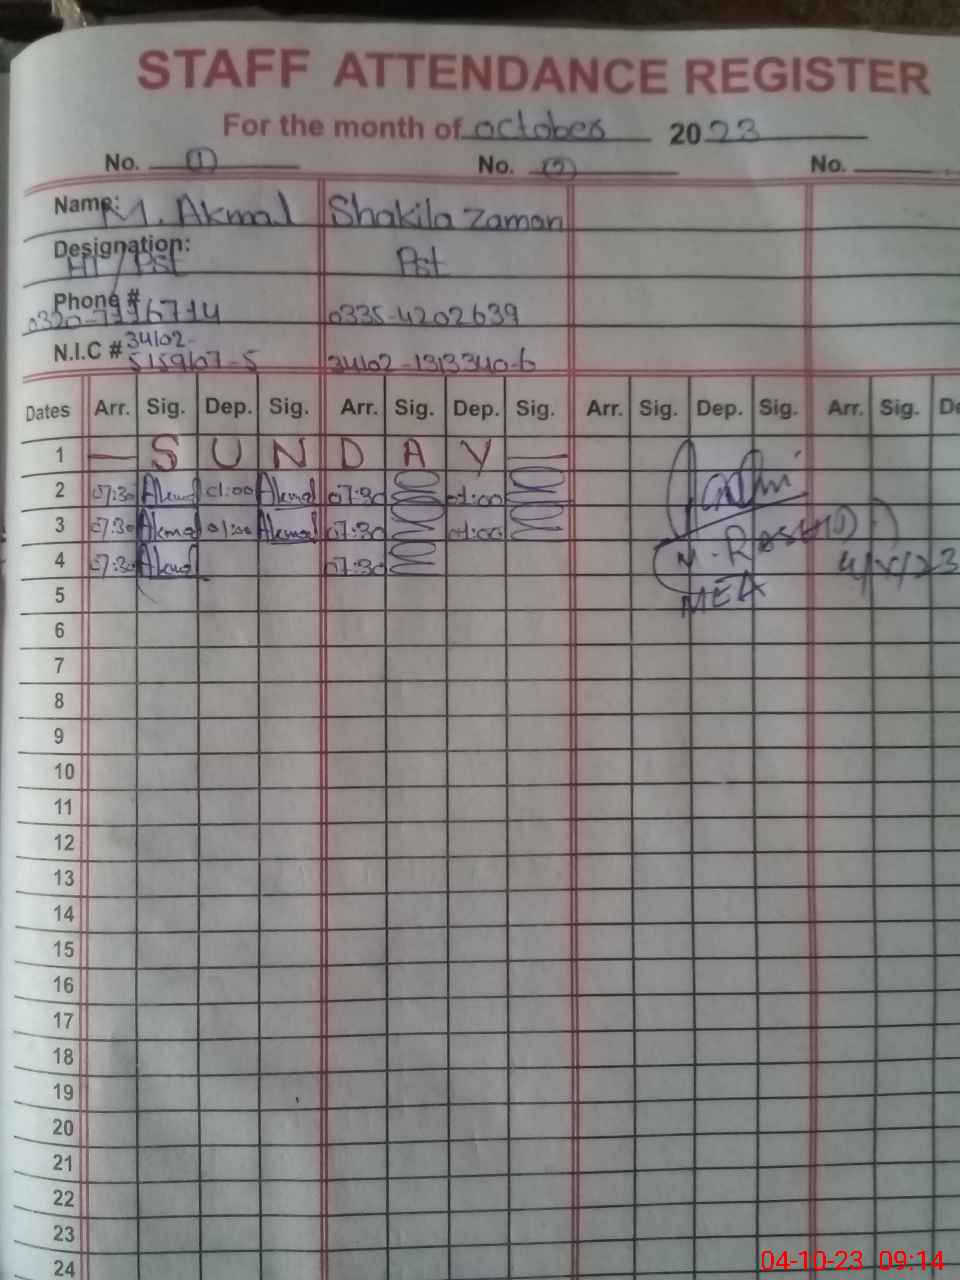 STAFF ATTENDANCE REGISTER
For the month of october 2023
No. 1 No. 2 No.
Name: M. Akmal Shakila Zaman
Designation: HT/Pst Pst
Phone # 0335-4202639
N.I.C # 34102-
5159107-5 34102-1313340-6
Dates Arr. Sig. Dep. Sig. Arr. Sig. Dep. Sig. Arr. Sig. Dep. Sig. Arr. Sig.
1 — S U N D A Y —
2 07:30 Akmal 01:00 Akmal 07:30 01:00
3 07:30 Akmal 01:00 Akmal 07:30 01:00
4 07:30 Akmal 07:30
MEA
5
6
7
8
9
10
11
12
13
14
15
16
17
18
19
20
21
22
23
24
04-10-23 09:14